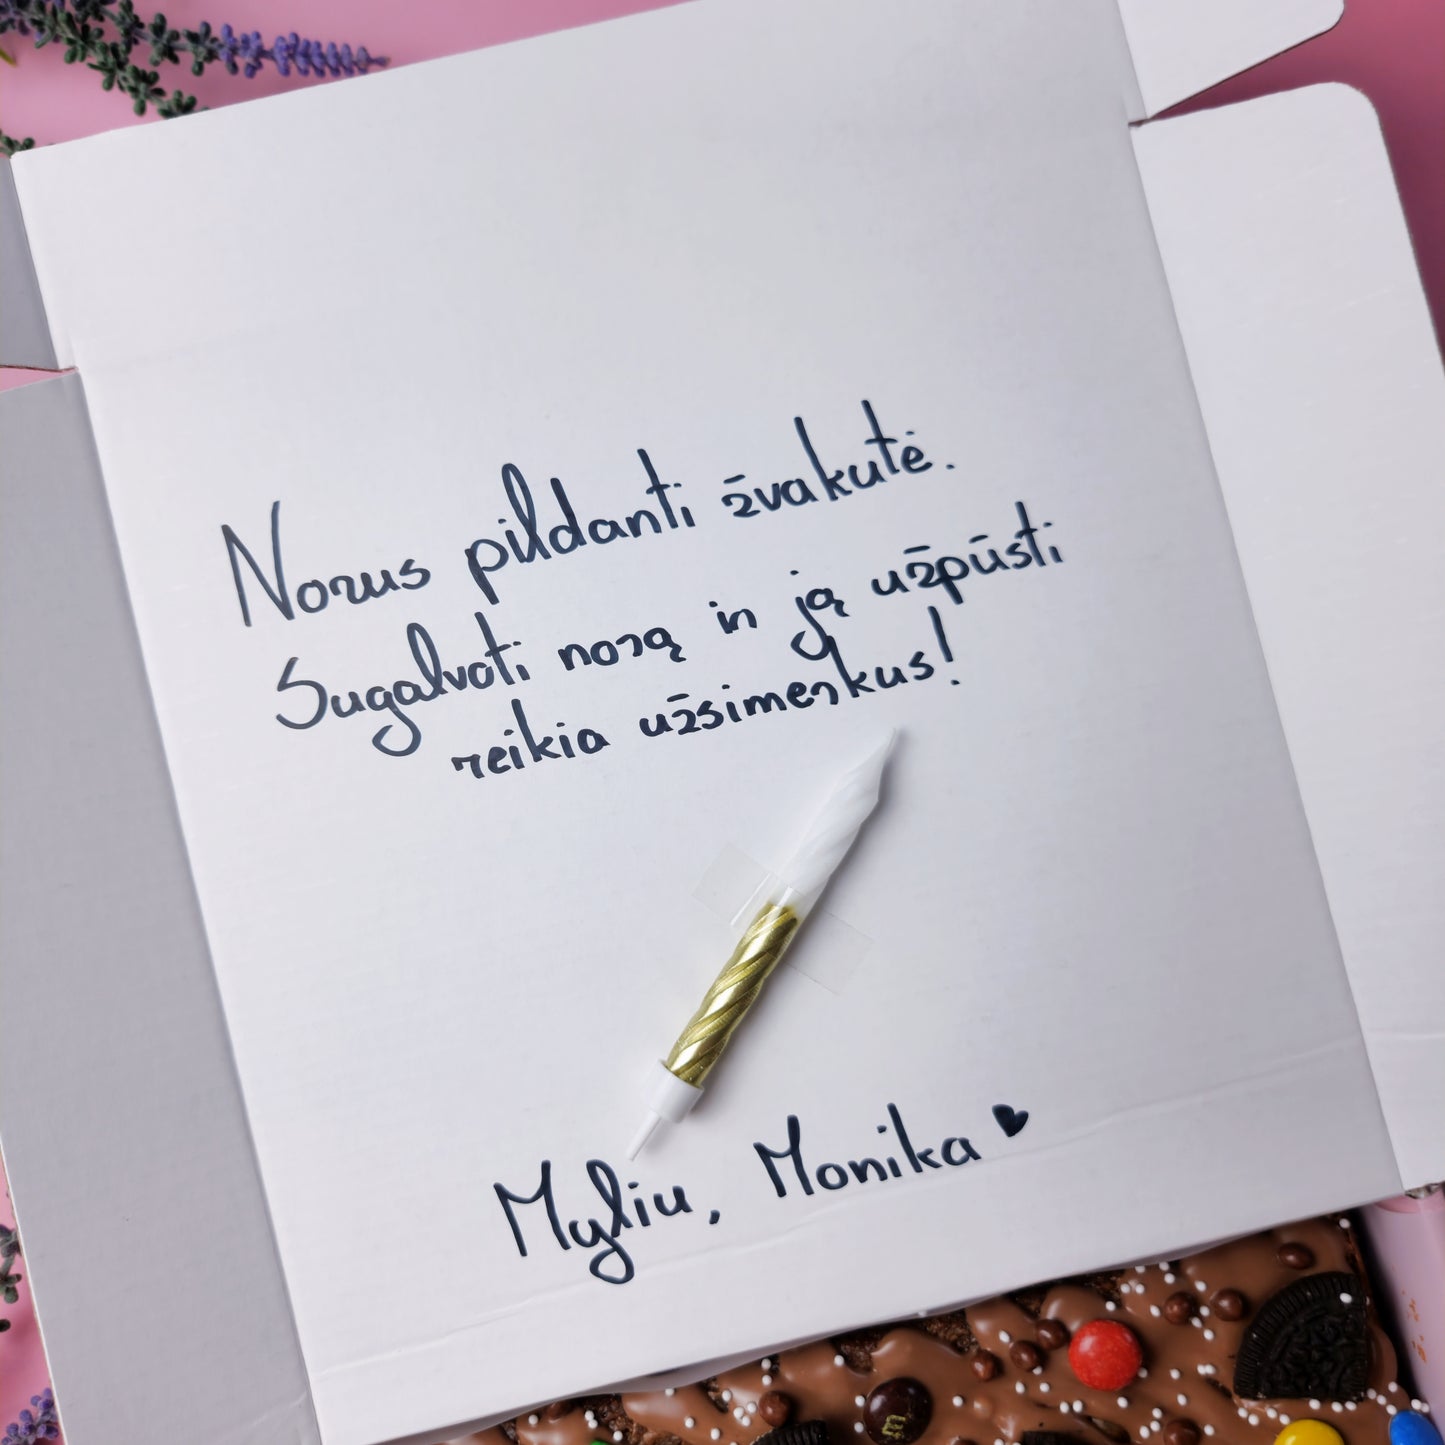 Norus pildanti žvakutė.
Sugalvoti norą ir ją užpūsti
reikia užsimerkus!
Myliu, Monika ♥
m